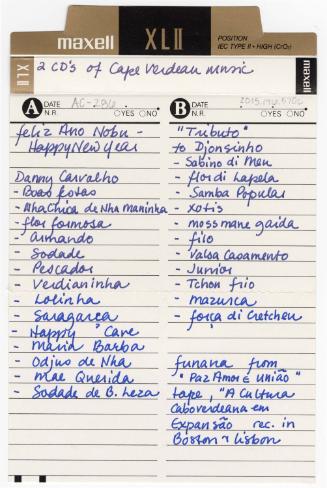 maxell XLII POSITION
IEC TYPE II • HIGH (CrO₂)
XLII
2 CD's of Cape Verdean music
maxell
A DATE AC-286
N.R. ○YES ○NO
feliz Ano Nobu -
Happy New Year
Danny Carvalho
- Boas festas
- Nha Chica de Nha Maninha
- flor formosa
- Armando
- Sodade
- Pescador
- Verdianinha
- Lolinha
- Saragaça
- Happy Cave
- Maria Barba
- Odjus de Nha
- Mae Querida
- Sodade de B. Leza
B DATE
N.R. ○YES ○NO
"Tributo"
to Djonsinho
- Sabino di Meu
- flor di Lapela
- Samba Popular
- Xotis
- moss mane gaida
- filo
- Valsa Casamento
- Junior
- Tchon frio
- mazurca
- força di Cretcheu
funana from
"Paz Amor e União"
tape, "A Cultura
Caboverdeana em
Expansão rec. in
Boston & Lisbon